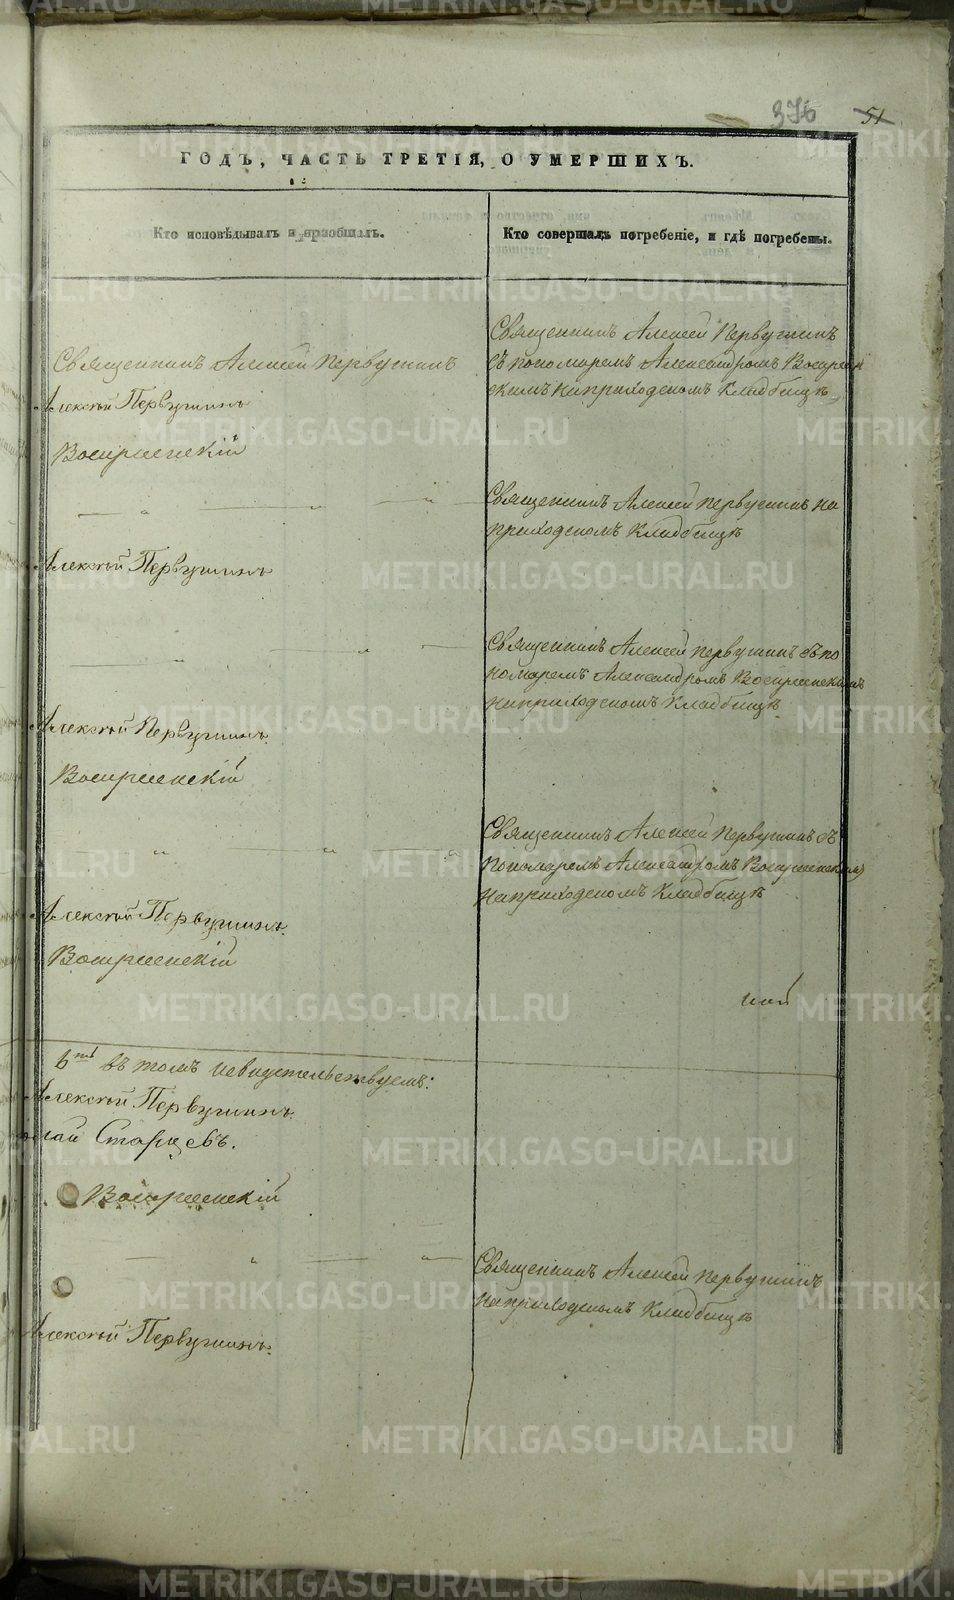 376 51
ГОДЪ, ЧАСТЬ ТРЕТІЯ, О УМЕРШИХЪ.
Кто исповѣдывалъ и пріобщалъ.
Кто совершалъ погребеніе, и гдѣ погребены.
Священникъ Алексей Первушинъ
Алексѣй Первушинъ
Воскресенскій
Священникъ Алексей Первушинъ
съ пономаремъ Александромъ Воскресен
скимъ на приходскомъ кладбищѣ
— „ — „ — „ —
Алексѣй Первушинъ
Священникъ Алексей Первушинъ на
приходскомъ кладбищѣ
„ „ „ —
Алексѣй Первушинъ
Воскресенскій
Священникъ Алексей Первушинъ съ по
номаремъ Александромъ Воскресенскимъ
на приходскомъ кладбищѣ
„ „ — „
Алексѣй Первушинъ.
Воскресенскій
Священникъ Алексей Первушинъ съ
пономаремъ Александромъ Воскресенским
на приходскомъ кладбищѣ
въ томъ и свидетельствуемъ:
Алексѣй Первушинъ.
олай Старцевъ.
Воскресенскій
— „ — „ —
Алексѣй Первушинъ.
Священникъ Алексей Первушинъ
на приходскомъ кладбищѣ
METRIKI.GASO-URAL.RU